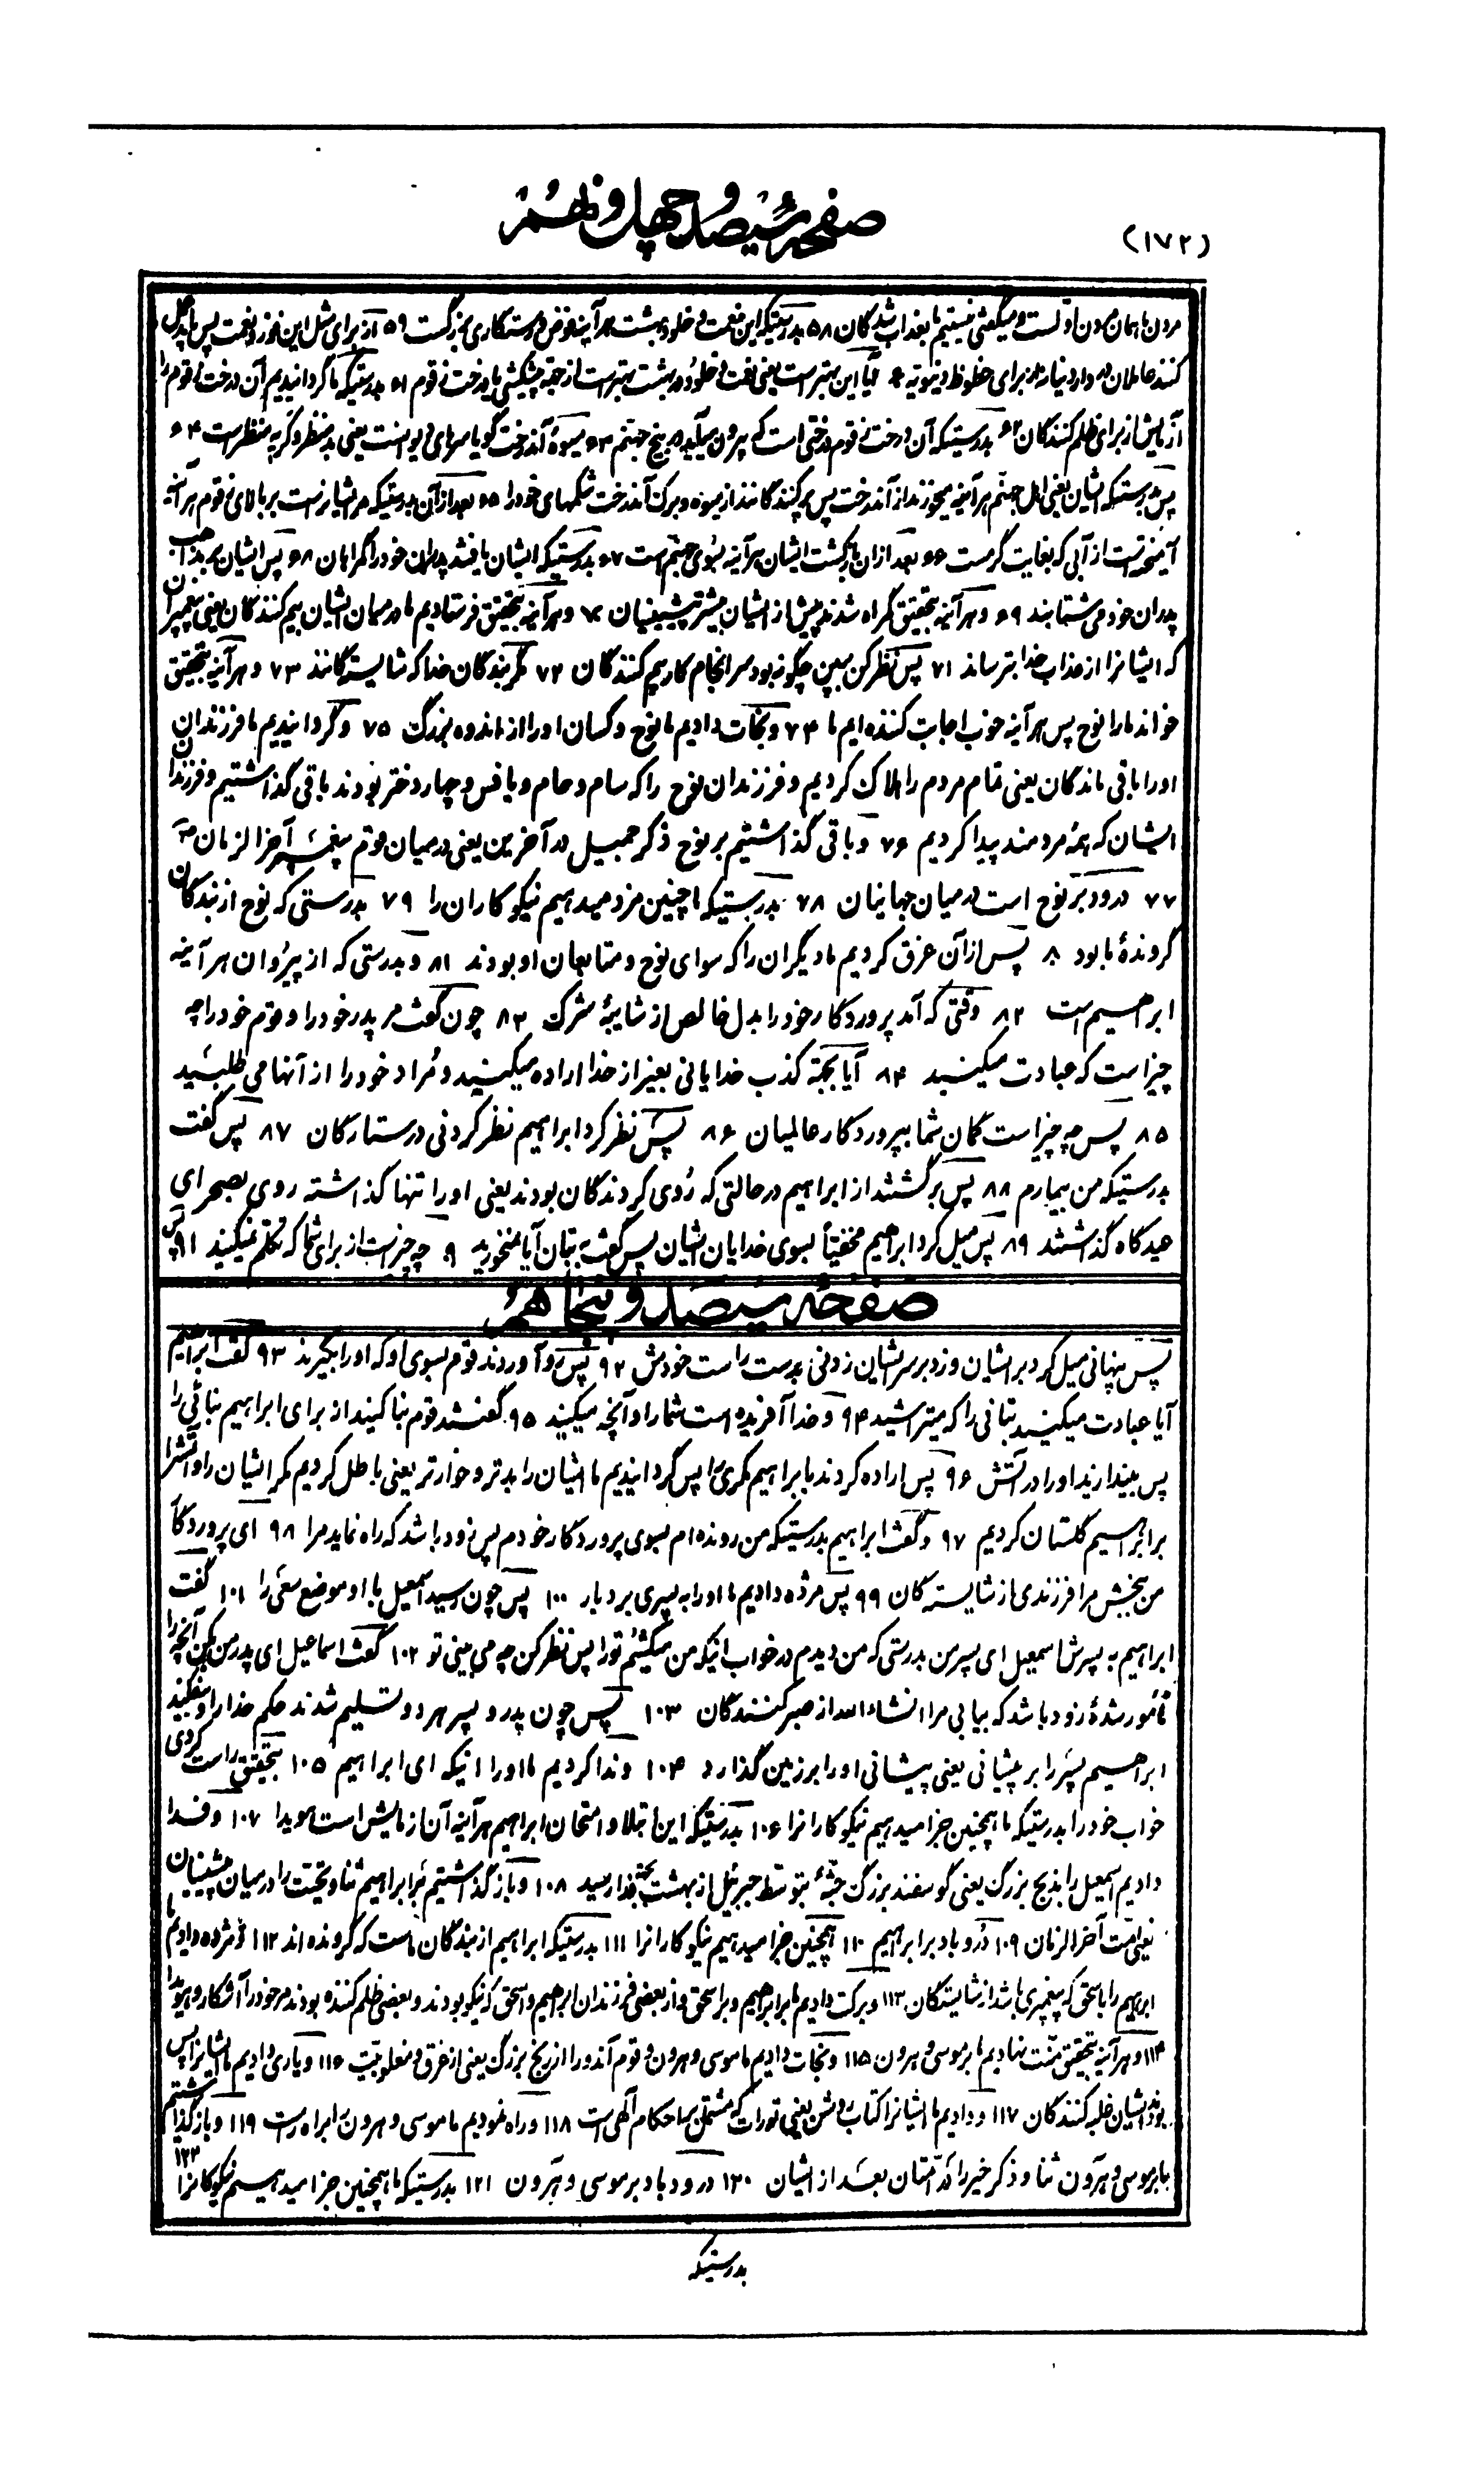 (۱۷۲)
صفحهٔ سیصد و چهل و نهم
مردن ما همان مردن اولست و میگفتی نیستیم ما بعذاب شدگان ۵۸ بدرستیکه این نعمت و خلود بهشت هر آینه فوز و رستکاری بزرگست ۵۹ از برای مثل این فوز و نعمت پس باید عمل
کنند عاملان در دار دنیا نه از برای حظوظ دنیویه ۶۰ آیا این بهتر است یعنی نعمت و خلود در بهشت بهتر است از جهة پیشکشی یا درخت زقوم ۶۱ بدرستیکه ما گردانیدیم آن درخت زقوم را
آزمایش از برای ظلم کنندگان ۶۲ بدرستیکه آن درخت زقوم درختی است که بیرون میآید در بیخ جهنم ۶۳ میوهٔ آندرخت گویا سرهای دیوهاست یعنی بد منظر و کریه منظر است ۶۴
پس بدرستیکه ایشان یعنی اهل جهنم هر آینه میخورند از آندرخت پس پر کنندگانند از میوه و برک آندرخت شکمهای خود را ۶۵ بعد از آن بدرستیکه مر ایشانراست بر بالای زقوم هر آینه
آمیخته است از آبی که بغایت گرمست ۶۶ بعد از آن بازگشت ایشان هر آینه بسوی جهنم است ۶۷ بدرستیکه ایشان یافتند پدران خود را گمراهان ۶۸ پس ایشان بر مذاهب
پدران خود می شتابند ۶۹ و هر آینه بتحقیق گمراه شدند پیش از ایشان بیشتر پیشینیان ۷۰ و هر آینه بتحقیق فرستادیم ما در میان ایشان بیم کنندگان یعنی پیغمبران
که ایشانرا از عذاب خدا بترساند ۷۱ پس نظر کن ببین چگونه بود سر انجام کار بیم کنندگان ۷۲ مگر بندگان خدا که شایستگانند ۷۳ و هر آینه بتحقیق
خواند ما را نوح پس هر آینه خوب اجابت کننده ایم ما ۷۴ و نجات دادیم ما نوح و کسان او را از اندوه بزرگ ۷۵ و گردانیدیم ما فرزندان
او را باقی ماندگان یعنی تمام مردم را هلاک کردیم و فرزندان نوح را که سام و حام و یافس و چهار دختر بودند باقی گذاشتیم و فرزندان
ایشان که همهٔ مردمند پیدا کردیم ۷۶ و باقی گذاشتیم بر نوح ذکر جمیل در آخرین یعنی در میان قوم پیغمبر آخر الزمان
۷۷ درود بر نوح است در میان جهانیان ۷۸ بدرستیکه ما چنین مزد میدهیم نیکو کاران را ۷۹ بدرستی که نوح از بندگان
گروندهٔ ما بود ۸۰ پس از آن غرق کردیم ما دیگران را که سوای نوح و متابعان او بودند ۸۱ و بدرستی که از پیروان هر آینه
ابراهیم است ۸۲ وقتی که آمد پروردگار خود را بدل خالص از شایبهٔ شرک ۸۳ چون گفت مر پدر خود را و قوم خود را چه
چیز است که عبادت میکنید ۸۴ آیا بجهة کذب خدایانی بغیر از خدا اراده میکنید و مراد خود را از آنها می طلبید
۸۵ پس چه چیز است گمان شما بپروردگار عالمیان ۸۶ پس نظر کرد ابراهیم نظر کردنی در ستارگان ۸۷ پس گفت
بدرستیکه من بیمارم ۸۸ پس برگشتند از ابراهیم در حالتی که روی گردندگان بودند یعنی او را تنها گذاشته روی بصحرای
عیدگاه گذاشتند ۸۹ پس میل کرد ابراهیم مخفیاً بسوی خدایان ایشان پس گفت به بتان آیا نمیخورید ۹۰ چه چیز است از برای شما که تکلم نمیکنید ۹۱ پس
صفحهٔ سیصد و پنجاهم
پس پنهانی میل کرد بر ایشان و زد بر سر ایشان زدنی بدست راست خودش ۹۲ پس رو آوردند قوم بسوی او که او را بگیرند ۹۳ گفت ابراهیم
آیا عبادت میکنید بتانی را که میتراشید ۹۴ و خدا آفریده است شما را و آنچه میکنید ۹۵ گفتند قوم بنا کنید از برای ابراهیم بنائی را
پس بیندازید او را در آتش ۹۶ پس اراده کردند بابراهیم مکری را پس گردانیدیم ما ایشان را بدتر و خوارتر یعنی باطل کردیم مکر ایشان را و آتش را
بر ابراهیم گلستان کردیم ۹۷ و گفت ابراهیم بدرستیکه من رونده ام بسوی پروردگار خودم پس زود باشد که راه نماید مرا ۹۸ ای پروردگار
من ببخش مرا فرزندی از شایسته کان ۹۹ پس مژده دادیم ما او را به پسری بردبار ۱۰۰ پس چون رسید اسمعیل با او موضع سعی را ۱۰۱ گفت
ابراهیم به پسرش اسمعیل ای پسر من بدرستی که من دیدم در خواب اینکه من میکشم تو را پس نظر کن چه می بینی تو ۱۰۲ گفت اسماعیل ای پدر من بکن آنچه را
مأمور شدهٔ زود باشد که بیابی مرا انشاءالله از صبر کنندگان ۱۰۳ پس چون پدر و پسر هر دو تسلیم شدند حکم خدا را و بیفکند
ابراهیم پسر را بر پیشانی یعنی پیشانی او را بر زمین گذارد ۱۰۴ و ندا کردیم ما او را اینکه ای ابراهیم ۱۰۵ بتحقیق راست کردی
خواب خود را بدرستیکه ما همچنین جزا میدهیم نیکو کارانرا ۱۰۶ بدرستیکه این ابتلا و امتحان ابراهیم هر آینه آن آزمایش است هویدا ۱۰۷ و فدا
دادیم اسمعیل را بذبح بزرگ یعنی گوسفند بزرگ جثهٔ بتوسط جبرئیل از بهشت بجهة فدا رسید ۱۰۸ و باز گذاشتیم بر ابراهیم ثنا و تحیت را در میان پیشینیان
یعنی امت آخر الزمان ۱۰۹ درود باد بر ابراهیم ۱۱۰ همچنین جزا میدهیم نیکو کارانرا ۱۱۱ بدرستیکه ابراهیم از بندگان ماست که گرونده اند ۱۱۲ و مژده دادیم ما
ابراهیم را باسحق که پیغمبری باشد از شایستگان ۱۱۳ و برکت دادیم ما بر ابراهیم و بر اسحق و از بعضی فرزندان ابراهیم و اسحق که نیکو بودند و بعضی ظلم کننده بودند مر خود را آشکار و هویدا
۱۱۴ و هر آینه بتحقیق منت نهادیم ما بر موسی و هرون ۱۱۵ و نجات دادیم ما موسی و هرون و قوم آندو را از رنج بزرگ یعنی از غرق و مغلوبیت ۱۱۶ و یاری دادیم ما ایشانرا پس
بودند ایشان غلبه کنندگان ۱۱۷ و دادیم ما ایشانرا کتاب روشن یعنی تورات که مشتمل بر احکام آلهی است ۱۱۸ و راه نمودیم ما موسی و هرون را براه راست ۱۱۹ و باز گذاشتیم
ما بر موسی و هرون ثنا و ذکر خیر را در امتان بعد از ایشان ۱۲۰ درود باد بر موسی و هرون ۱۲۱ بدرستیکه ما همچنین جزا میدهیم نیکو کارانرا ۱۲۲
بدرستیکه